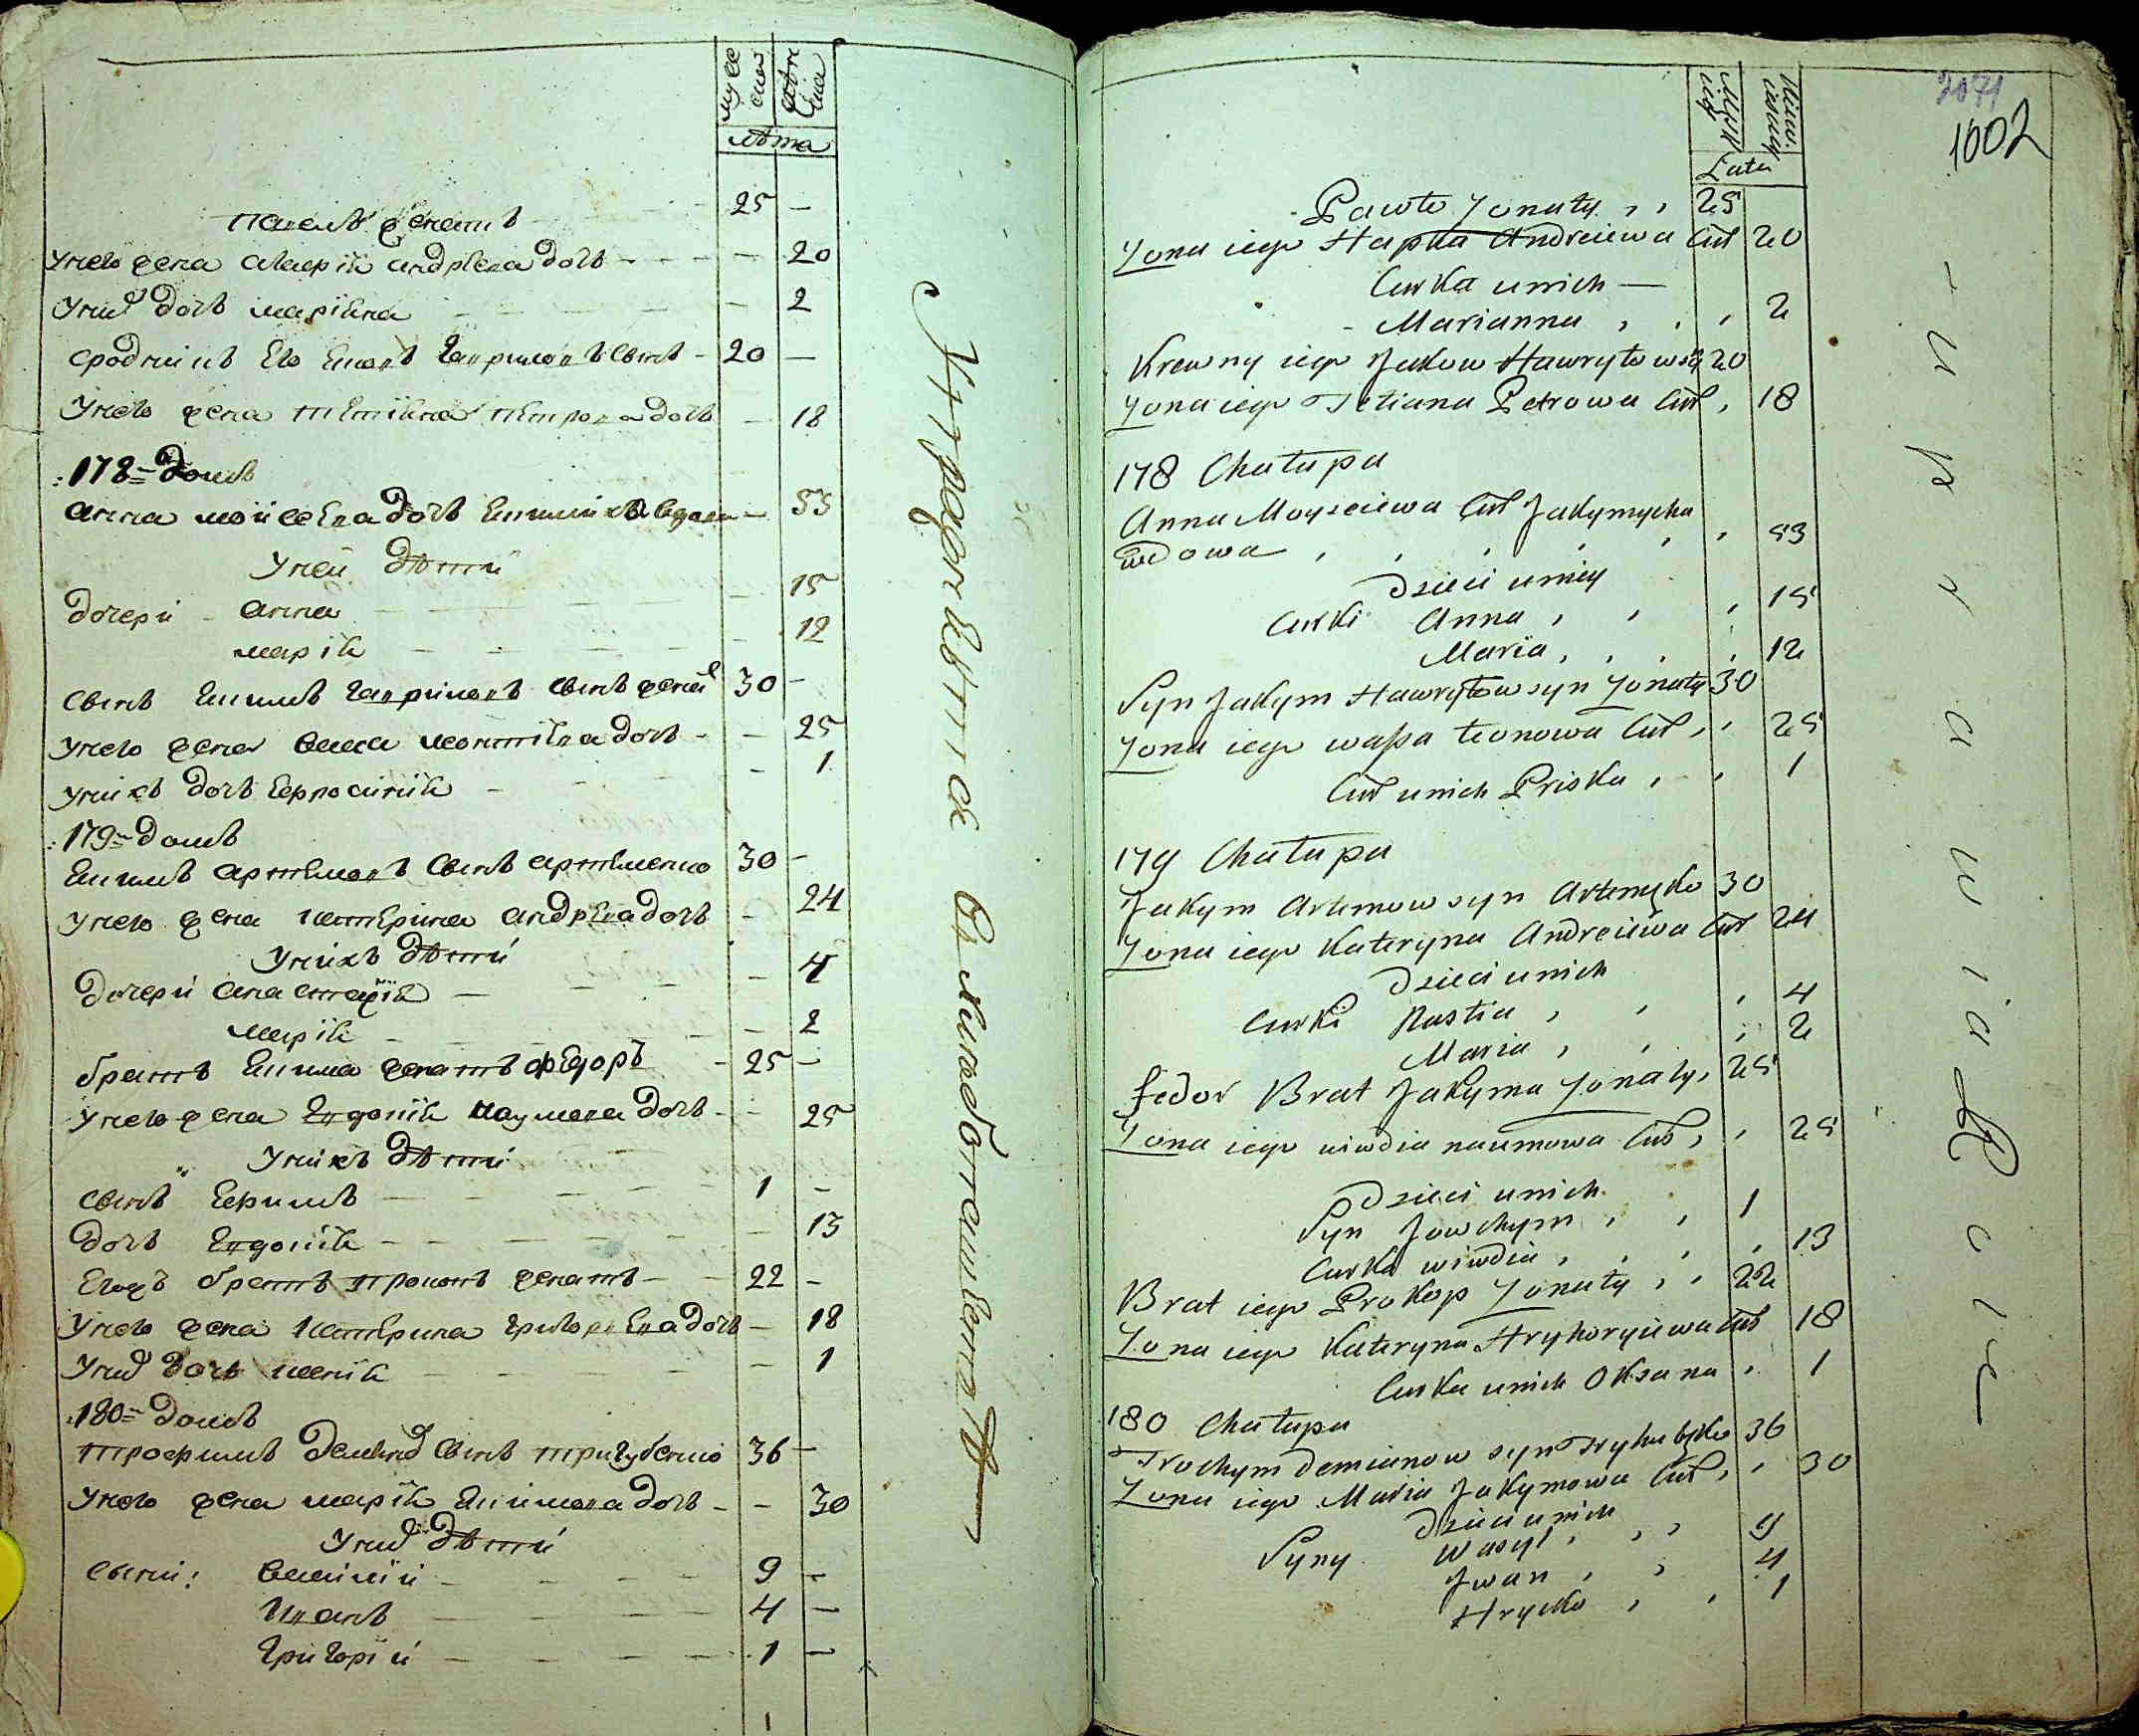 мужес
ска
женс
кіа
лѣта
павелъ женатъ 25 —
унего жена марія андреева дочь — 20
уних дочь маріяна — 2
сродникъ его яковъ гавриловъ сынъ — 20 —
унего жена тетіяна петрова дочь — 18
178 = домъ
анна моисеева дочь вдова — 53
уней дѣти
дочери анна — 15
марія — 12
сынъ якимъ гавриловъ сынъ женат 30 —
унего жена васса леонтіева дочь — 25
унихъ дочь — 1
179 = домъ
якимъ артемовъ сынъ артеменко 30 —
унего жена катерина андреева дочь — 24
унихъ дѣти
дочери анастасія — 4
марія — 2
братъ якима женатъ федоръ 25 —
унего жена евдокія наумова дочь — 25
унихъ дѣти
сынъ ефимъ 1 —
дочь евдокія — 13
братъ прокопъ женатъ 22 —
унего жена катерина григориева дочь — 18
уних дочь ксенія — 1
180 = домъ
трофимъ демянов сынъ тригубенко 36 —
унего жена марія якимова дочь — 30
уних дѣти
сыни: василій 9 —
иванъ 4 —
григорій 1 —
1
3071
1002
Męzk
iey
Lata
Pawło Żonaty 25
Żona iego Hapka Andreiewa Cur 20
Curka unich —
Marianna 2
Krewny iego Jakow Hawryłow sy 20
Żona iego Tetiana Petrowa Cur 18
178 Chałupa
Anna Moyseiewa Cur Jakymycha
wdowa 53
Dzieci uniey
Curki Anna 15
Maria 12
Syn Jakym Hawryłow syn Żonaty 30
Żona iego Waſsa Leonowa Cur 25
Cur unich Priska 1
179 Chałupa
Jakym Artemow syn Artemęko 30
Żona iego Kateryna Andreiewa Cur 24
Dzieci unich
Curki Nastia 4
Maria 2
Fedor Brat Jakyma Żonaty 25
Żona iego wiwdia naumowa Cur 25
Dzieci unich
Syn Jowchym 1
Curka wiwdia 13
Brat iego Prokop Żonaty 22
Żona iego Kateryna Hryhoryiewa Cur 18
Curka unich Oksana 1
180 Chałupa
Trochym Demianow syn Tryhubęko 36
Żona iego Maria Jakymowa Cur 30
Dzieci unich
Syny Wasyl 9
Jwan 4
Hrycko 1